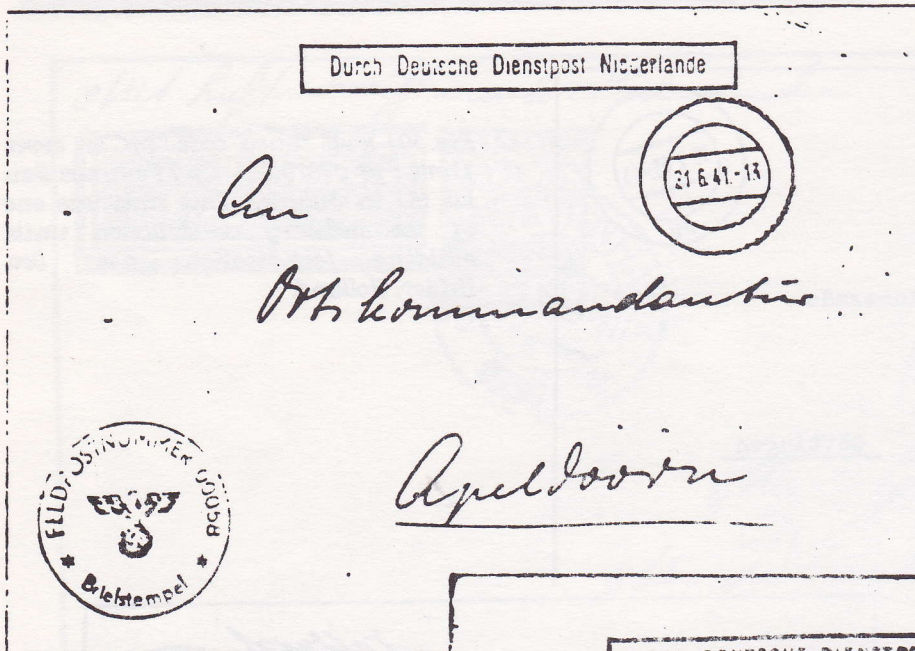 Durch Deutsche Dienstpost Niederlande
21.6.41.-13
An
Ortskommandantur
Apeldoorn
FELDPOSTNUMMER
Briefstempel
DEUTSCHE